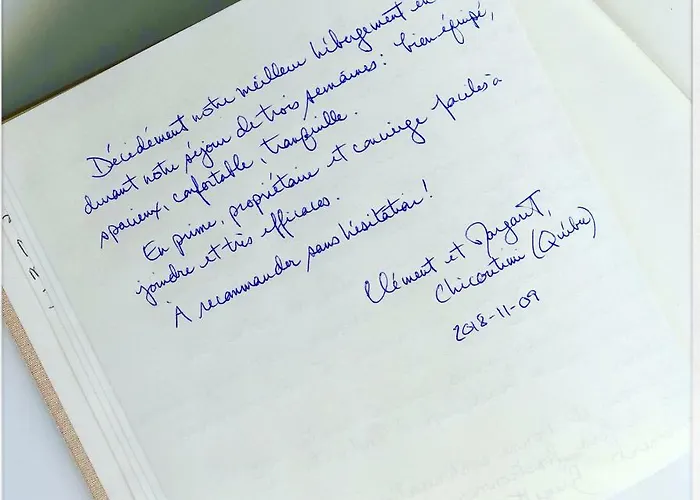 Décidément notre meilleur hébergement en
durant notre séjour de trois semaines: bien équipé,
spacieux, confortable, tranquille.
En prime, propriétaire et concierge faciles à
joindre et très efficaces.
À recommander sans hésitation!
Clément et Margaret,
Chicoutimi (Québec)
2018-11-09